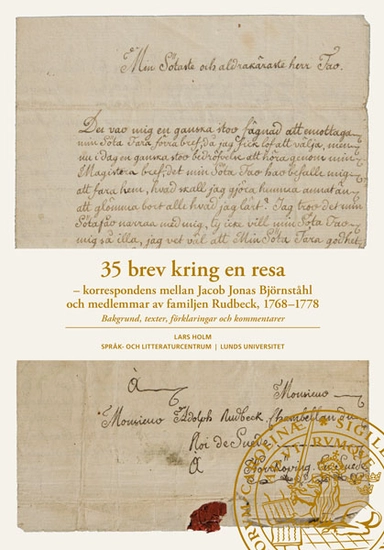 Min Sötaste och aldrakäraste herr Far.
Det var mig en ganska stor fägnad att emottaga
min Söta Fars förra bref, då jag fick lof att välja, men
nu i dag en ganska stor bedröfvelse att höra genom min
Magisters bref, det min Söta Far har befalt mig
att fara hem, hvad skall jag gjöra kunna annat än
att glömma bort alle hvad jag lärt? Jag tror det min
Söta far narras med mig, ty icke vill min Söta Far
mig så illa, jag vet väl att Min Söta Fars godhet
35 brev kring en resa
– korrespondens mellan Jacob Jonas Björnståhl
och medlemmar av familjen Rudbeck, 1768–1778
Bakgrund, texter, förklaringar och kommentarer
LARS HOLM
SPRÅK- OCH LITTERATURCENTRUM | LUNDS UNIVERSITET
À Monsieur
Monsieur Adolph Rudbeck, Chambellan
Roi de Suede
À Norrkoping en Suede